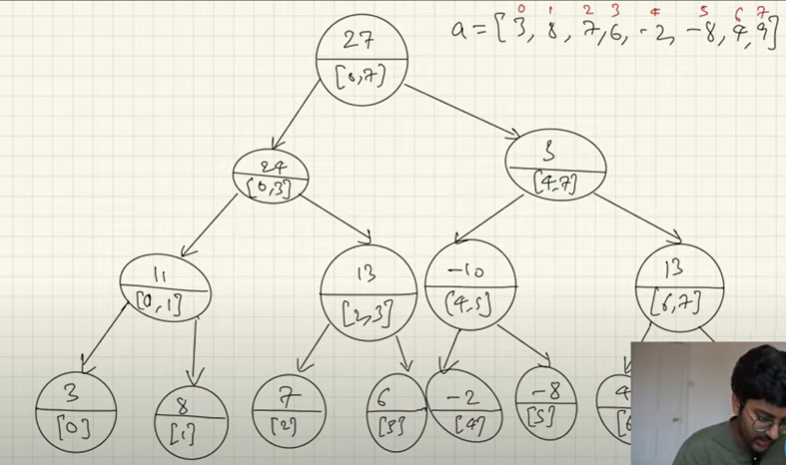 0 1 2 3 4 5 6 7
a = [3, 8, 7, 6, -2, -8, 4, 9]
27
[0,7]
24
[0,3]
3
[4,7]
11
[0,1]
13
[2,3]
-10
[4,5]
13
[6,7]
3
[0]
8
[1]
7
[2]
6
[3]
-2
[4]
-8
[5]
4
[6